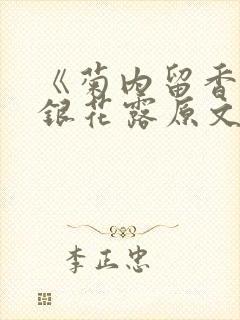 《菊内留香
銀花露原文
李正忠